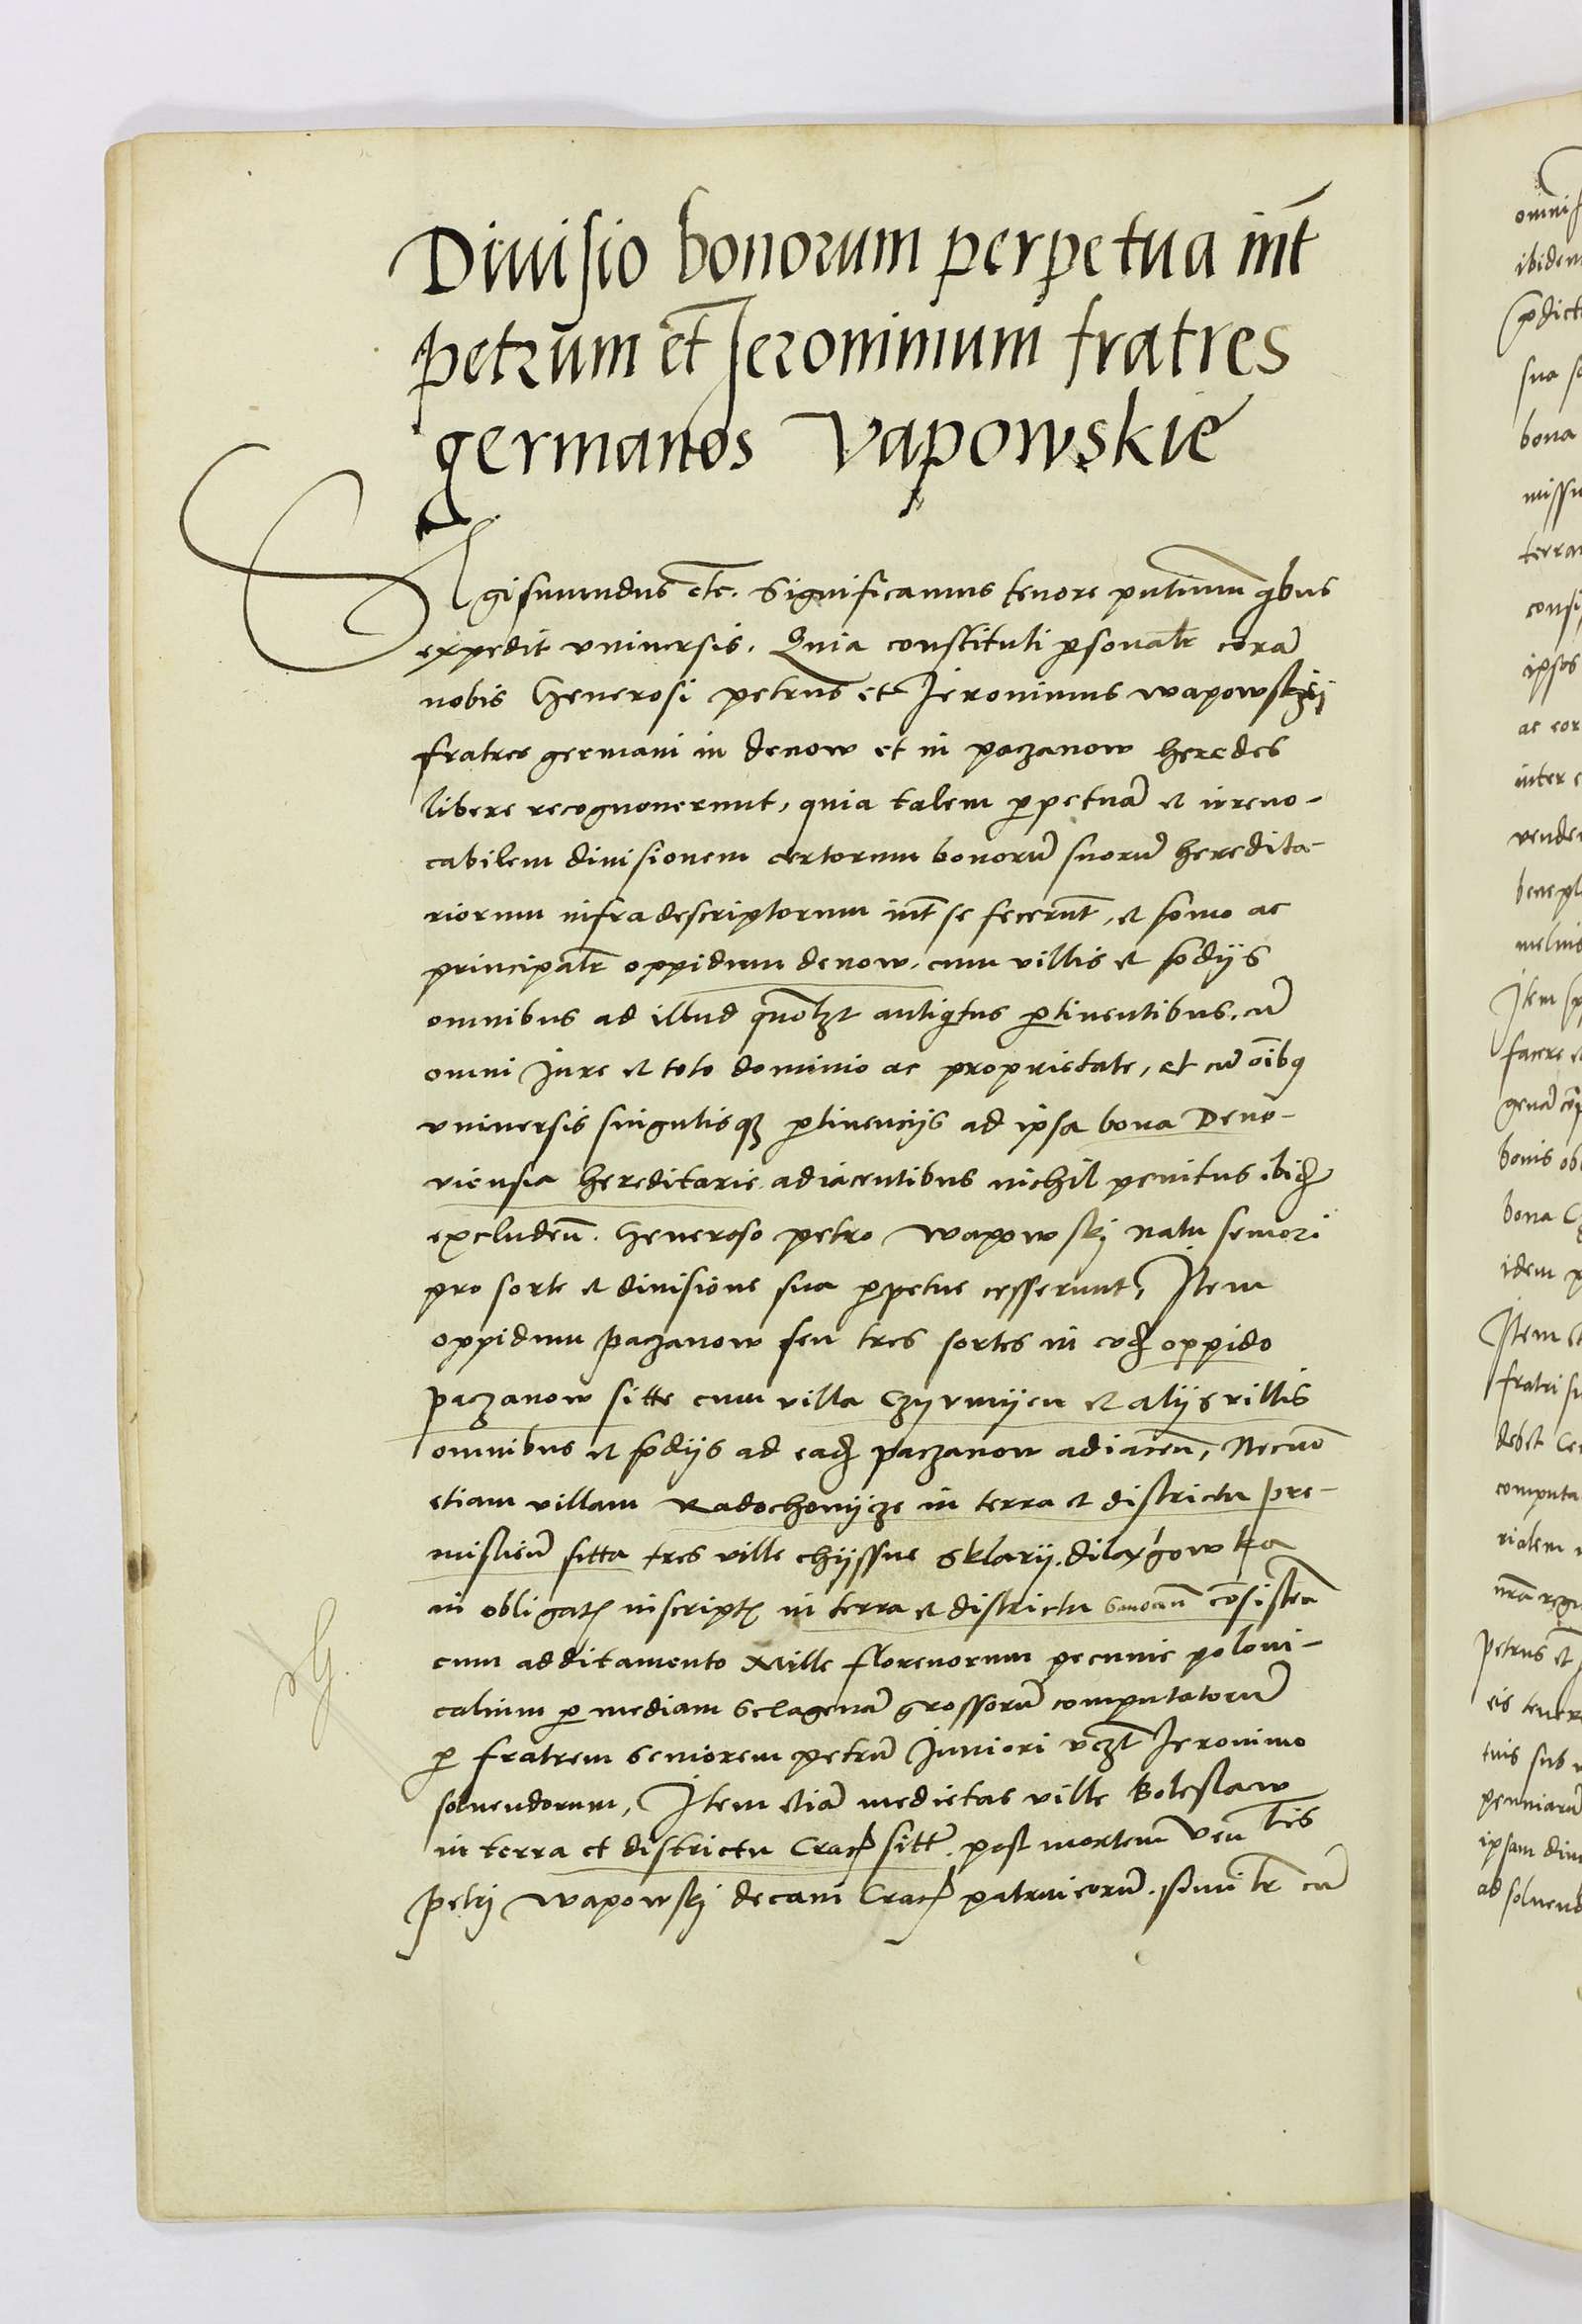 Diuisio bonorum perpetua int̃
petrum et Jeronimum fratres
germanos Vapowskie
Sigismundus etc. Significamus tenore pñtium qibus
expedit vniuersis. Quia constituti psonalr̃ corã
nobis Generosi petrus et Jeronimus wapowskij
fratres germani in denow et in paczanow heredes
libere recognouerunt, quia talem ppetuã et irreuo-
cabilem diuisionem certorum bonorũ suorũ heredita-
riorum infradescriptorum int̃ se fecerunt̃, et pomo ac
principalr̃ oppidum denow, cum villis et pdijs
omnibus ad illud antiqitus ptinentibus, cũ
omni Jure et toto dominio ac proprietate, et cũ oĩbq
vniuersis singulisqz ptinencijs ad ipsa bona Deno-
viensia hereditarie adiacentibus nichil penitus ibid
excludeñ. Generoso petro wapowskj natu seniori
pro sorte et diuisione sua ppetue cesserunt, Item
oppidum paczanow seu tres sortes in eod oppido
paczanow sitte cum villa Czyrmijen et alijs villis
omnibus et pdijs ad ead paczanow adiaceñ, Necnõ
etiam villam Radochonijcze in terra et districtu pre-
mislieñ sitta tres ville chijssne Sklarij. dilaxgowka
in obligatę inscriptę in terra et districtu Sanoceñ cõsisteñ
cum additamento Mille florenorum pecunie poloni-
calium p mediam sexagenã grossorũ computatorũ
p fratrem seniorem petrũ Juniori vczt Jeronimo
soluendorum, Item etiã medietas ville Boleslaw
in terra et districtu Crac sitte. post mortem Veñlis
petrj wapowskj decani Crac patrui eorũ. similr̃ cũ
omni
ibidem
pdict
sua
bona
missu
terra
consi
ipsos
ac eor
inter e
vende
benepl
melius
Item
facere
bonis ob
bona
idem p
Item
fratri su
debet
computa
rialem
petrus et
eis tener
tuis sub
ipsam diui
ad soluend